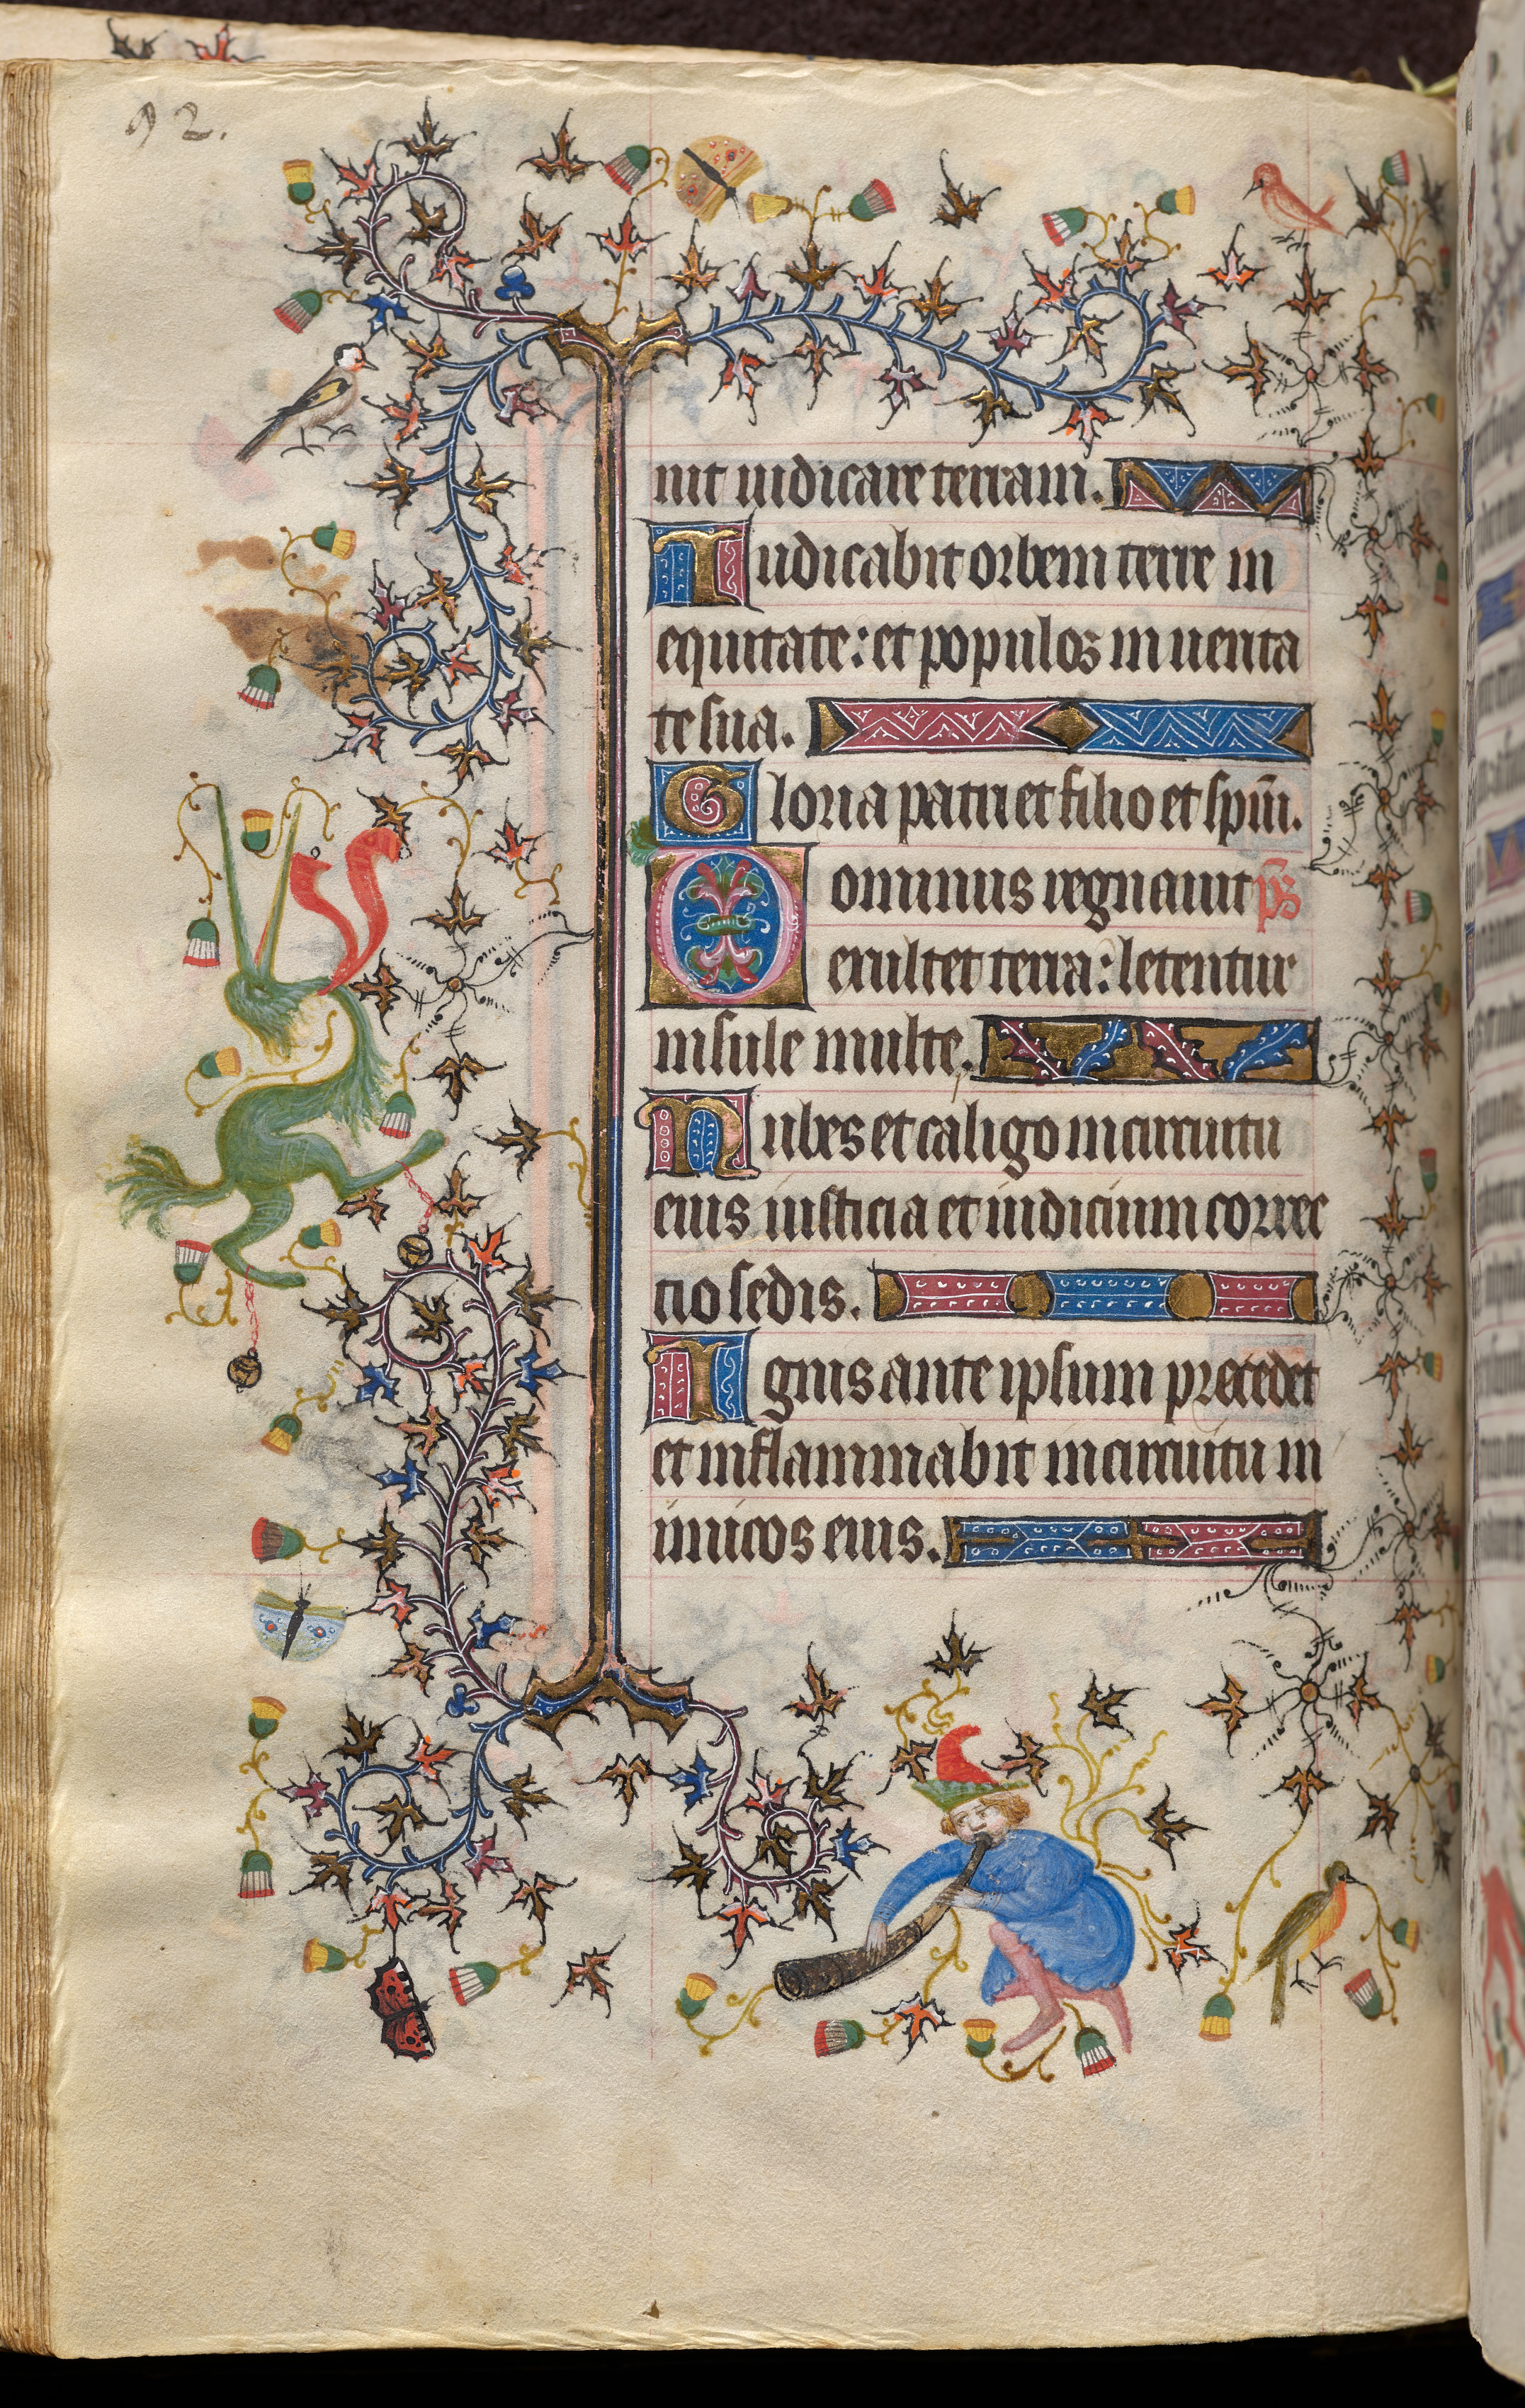 92.
nit iudicare terram.
Iudicabit orbem terre in
equitate: et populos in uerita
te sua.
Gloria patri et filio et spūi.
Dominus regnauit pš
exultet terra: letentur
insule multe.
Nubes et caligo in circuitu
eius iusticia et iudicium correc
tio sedis.
Ignis ante ipsum precedet
et inflammabit in circuitu in
imicos eius.